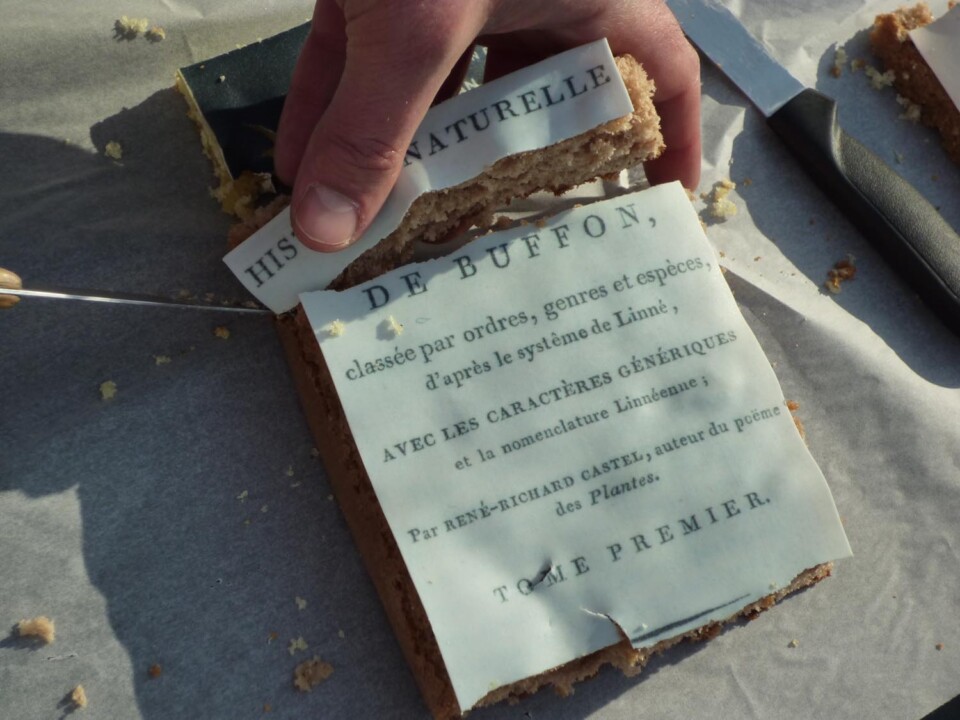 HIS NATURELLE
DE BUFFON,
classée par ordres, genres et espèces,
d'après le système de Linné,
AVEC LES CARACTÈRES GÉNÉRIQUES
et la nomenclature Linnéenne;
Par RENÉ-RICHARD CASTEL, auteur du poëme
des Plantes.
TOME PREMIER.